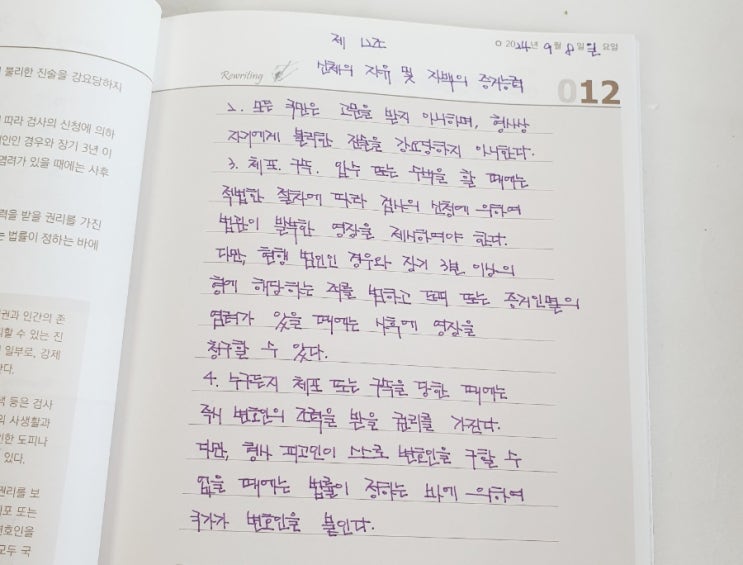 불리한 진술을 강요당하지
따라 검사의 신청에 의하
인인 경우와 장기 3년 이
염려가 있을 때에는 사후
력을 받을 권리를 가진
는 법률이 정하는 바에
권과 인간의 존
할 수 있는 진
일부로, 강제
다.
등은 검사
의 사생활과
한 도피나
있다.
권리를 보
포 또는
변호인을
모두 국
제 12조
2024년 9월 8일 일요일
Rewriting
신체의 자유 및 자백의 증거능력
012
2. 모든 국민은 고문을 받지 아니하며, 형사상
자기에게 불리한 진술을 강요당하지 아니한다.
3. 체포. 구속. 압수 또는 수색을 할 때에는
적법한 절차에 따라 검사의 신청에 의하여
법관이 발부한 영장을 제시하여야 한다.
다만, 현행 범인인 경우와 장기 3년 이상의
형에 해당하는 죄를 범하고 도피 또는 증거인멸의
염려가 있을 때에는 사후에 영장을
청구할 수 있다.
4. 누구든지 체포 또는 구속을 당한 때에는
즉시 변호인의 조력을 받을 권리를 가진다.
다만, 형사 피고인이 스스로 변호인을 구할 수
없을 때에는 법률이 정하는 바에 의하여
국가가 변호인을 붙인다.